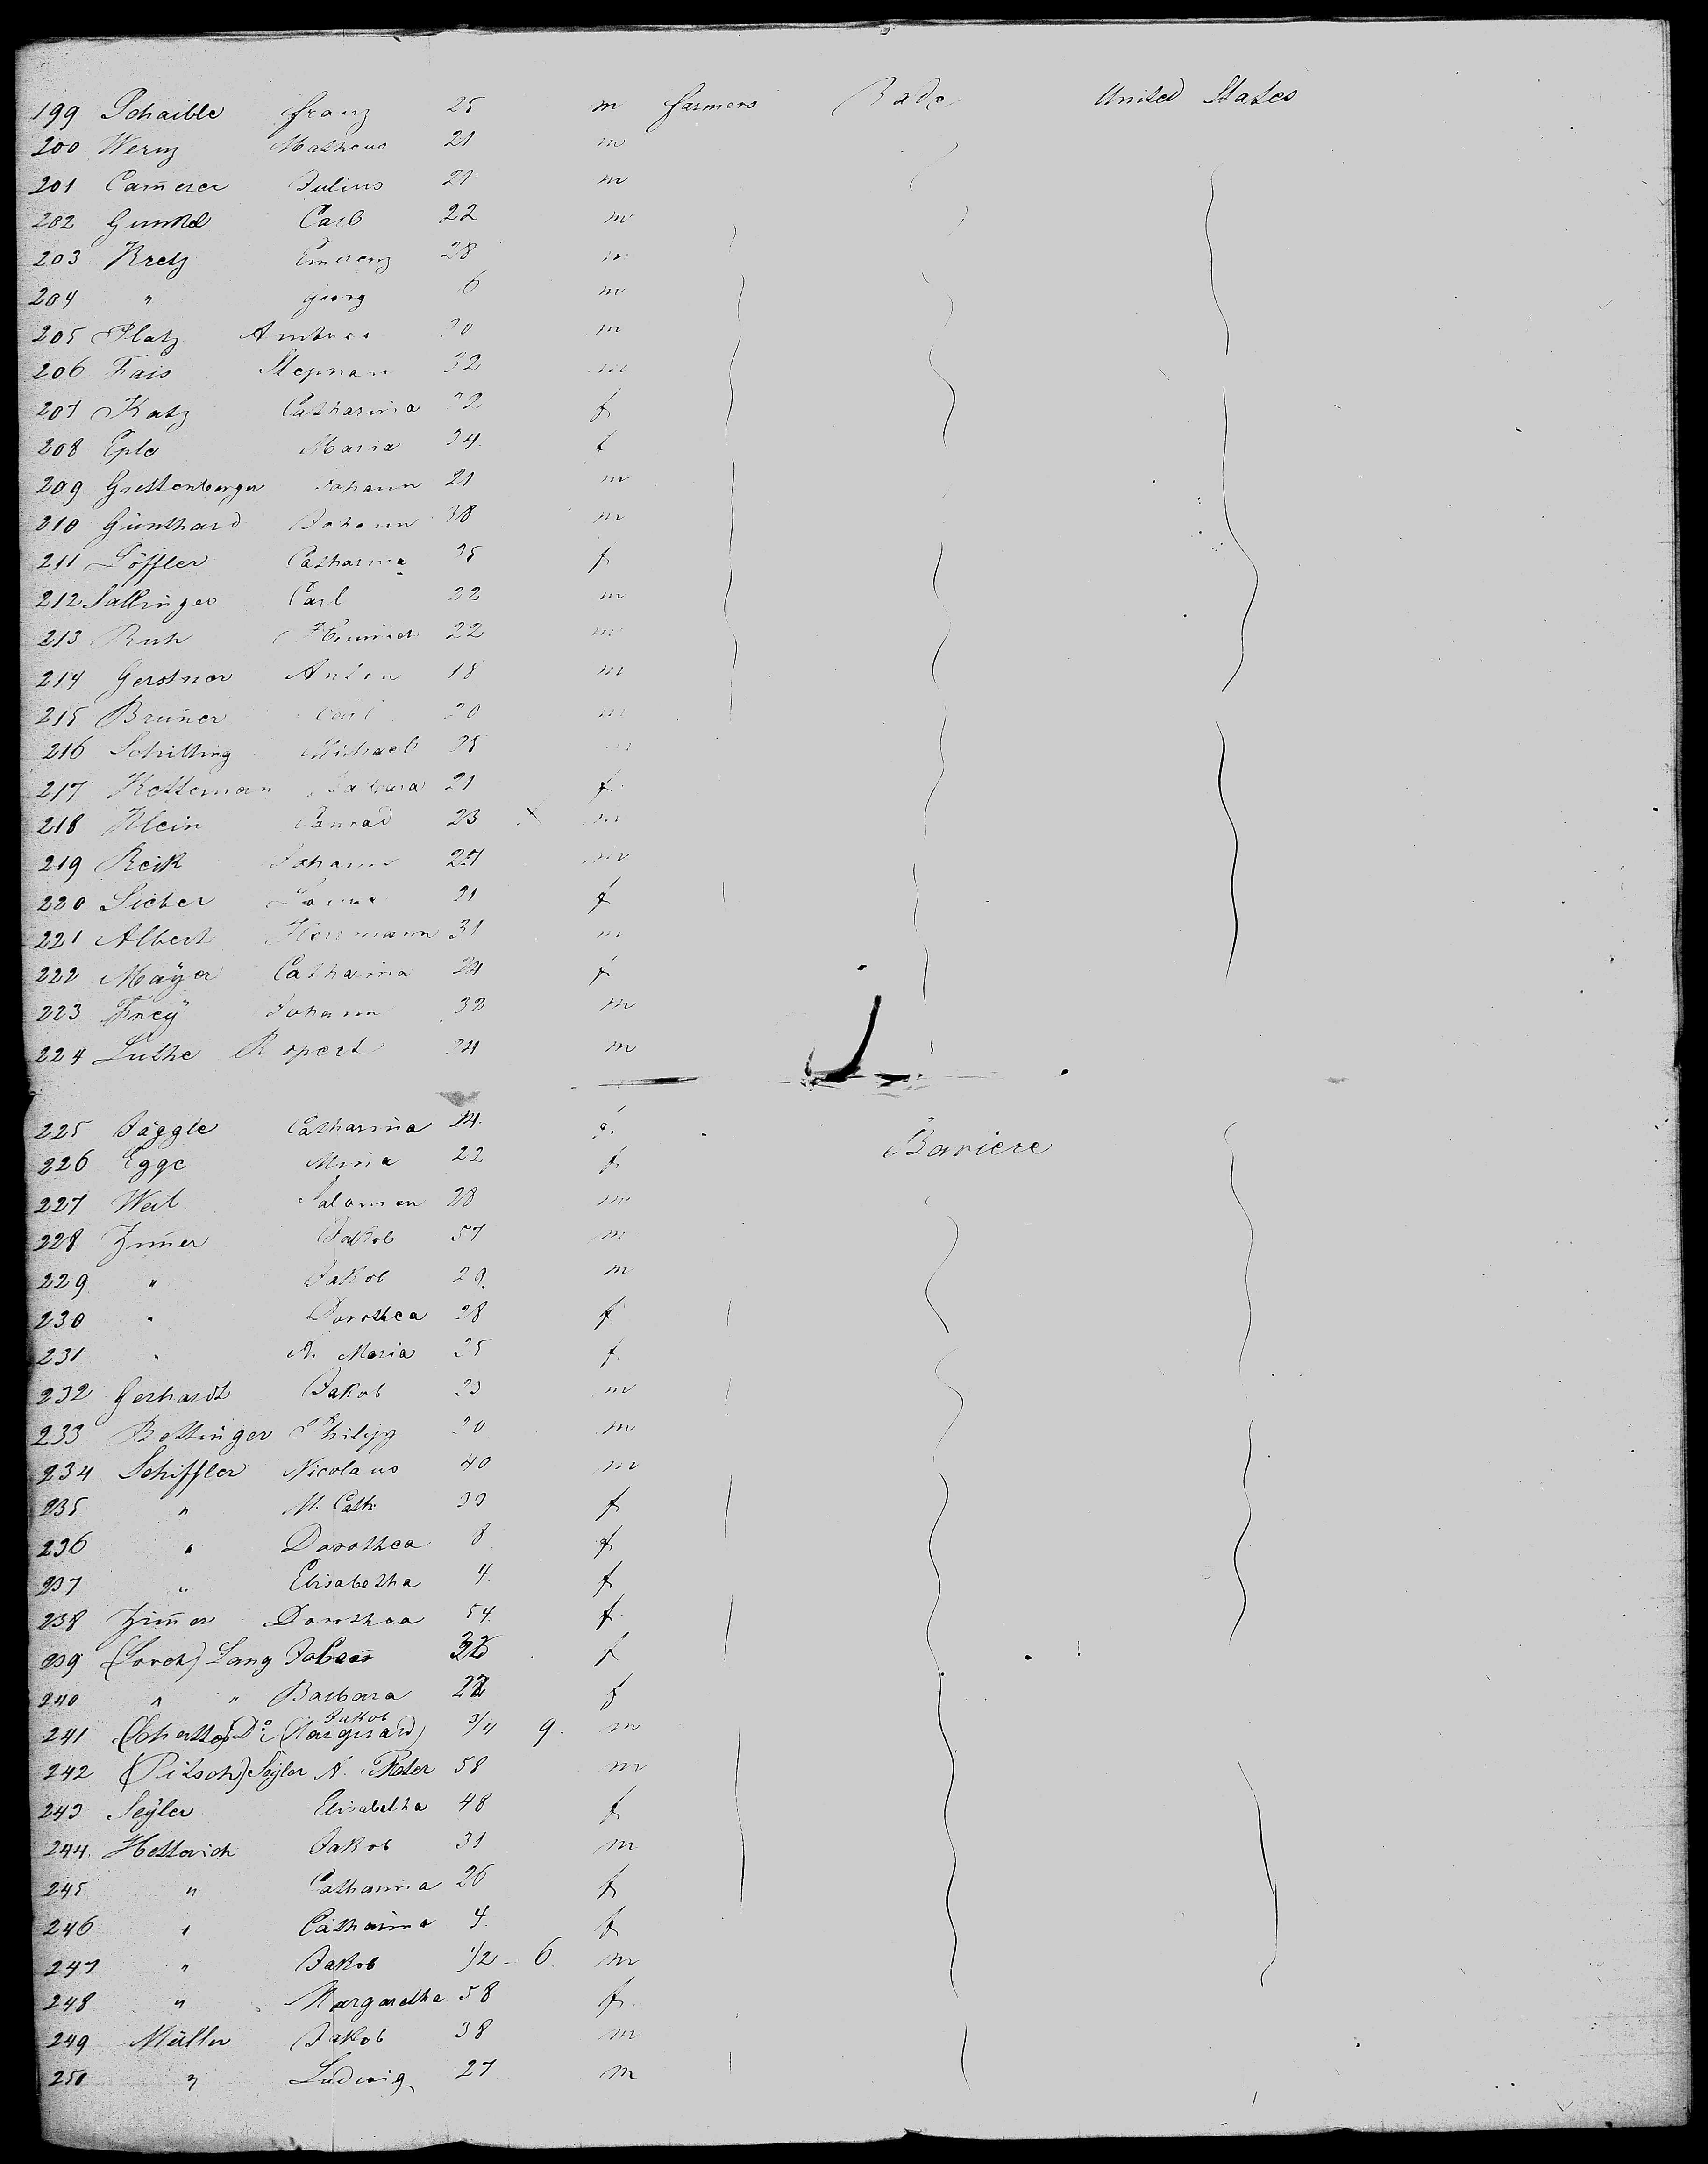 199 Schaible Franz 25 m farmers Bade United States
200 Wernz Matheus 21 m
201 Cam̄erer Julius 21 m
202 Gunkel Carl 22 m
203 Kretz Emerenz 28 m
204 " Georg 6 m
205 Platz 20 m
206 Fais Stephan 32 m
207 Katz Catharina 22 f
208 Eple Maria 24 f
209 Grettenberger Johann 21 m
210 Günthard Johann 38 m
211 Löffler Catharina 25 f
212 Sallinger Carl 22 m
213 Ruh Heinrich 22 m
214 Gerstner Anton 18 m
215 Brun̄er Carl 20 m
216 Schilling Michael 25 m
217 Ketteman Barbara 21 f
218 Klein Conrad 23 x m
219 Reik Johann 27 m
220 Sieber 21 f
221 Albert Herrmann 31 m
222 Maÿer Catharina 24 f
223 Freÿ Johann 32 m
224 Luthe Rupert 24 m
225 Jäggle Catharina 24 f
226 Egge Mina 22 f Baviere
227 Weil Salomon 28 m
228 Zim̄er Jakob 57 m
229 " Jakob 29 m
230 " Dorothea 28 f
231 " A. Maria 25 f
232 Gerhardt Jakob 23 m
233 Bettinger Philipp 20 m
234 Schiffler Nicolaus 40 m
235 " M. Cath 33 f
236 " Dorothea 8 f
237 " Elisabetha 4 f
238 Zim̄er Dorothea 54 f
239 (Lorch) Lang 32 f
240 " " Barbara 22 f
241 Do Jakob 3/4 9. m
242 (Pitsch) Seÿler A. Peter 58 m
243 Seÿler Elisabetha 48 f
244 Hetterich Jakob 31 m
245 " Catharina 26 f
246 " Catharina 4 f
247 " Jakob 1/2 - 6 m
248 " Margaretha 58 f
249 Müller Jakob 38 m
250 " Ludwig 27 m